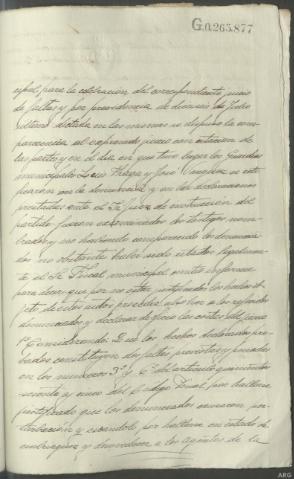 G.0.265.877
cipal para la celebración del correspondiente juicio
de faltas y por providencia de dieciseis de Julio
último dictada en las mismas se dispuso la com-
parecencia al expresado juicio con citacion de
las partes y en el dia en que tuvo lugar los Guardias
municipales Luis y José se rati-
ficaron con la denuncia y en las declaraciones
prestadas ante el Sr Juez de instrucción del
partido fueron examinados los testigos nom-
brados y no habiendo comparecido los denuncia-
dos no obstante haber sido citados legalmen-
te el Sr Fiscal municipal emitió informe
para decir que por no estar justificados los hechos ob-
jeto de estos autos procedia absolver a los referidos
denunciados y declarar de oficio las costas del juicio
1º Considerando: Que los hechos declarados pro-
bados constituyen dos faltas previstas y penadas
en los numeros 3º y 6º del articulo quinientos
ochenta y nueve del Código Penal por hallarse
justificado que los denunciados causaron per-
turbación y escándalo por hallarse en estado de
embriaguez y desobedecer a los agentes de la
ARG